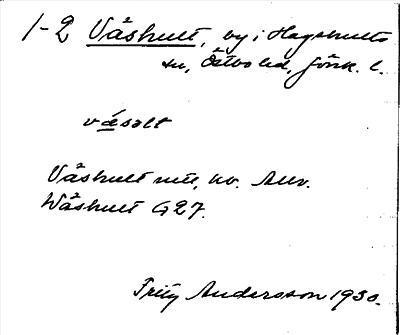 1-2 Våshult, by i Hagshults
sn, Östbo hd, Jönk. l.
våsalt
Våshult nu, kv.
Wåshult G27.
Fritz Andersson 1930.